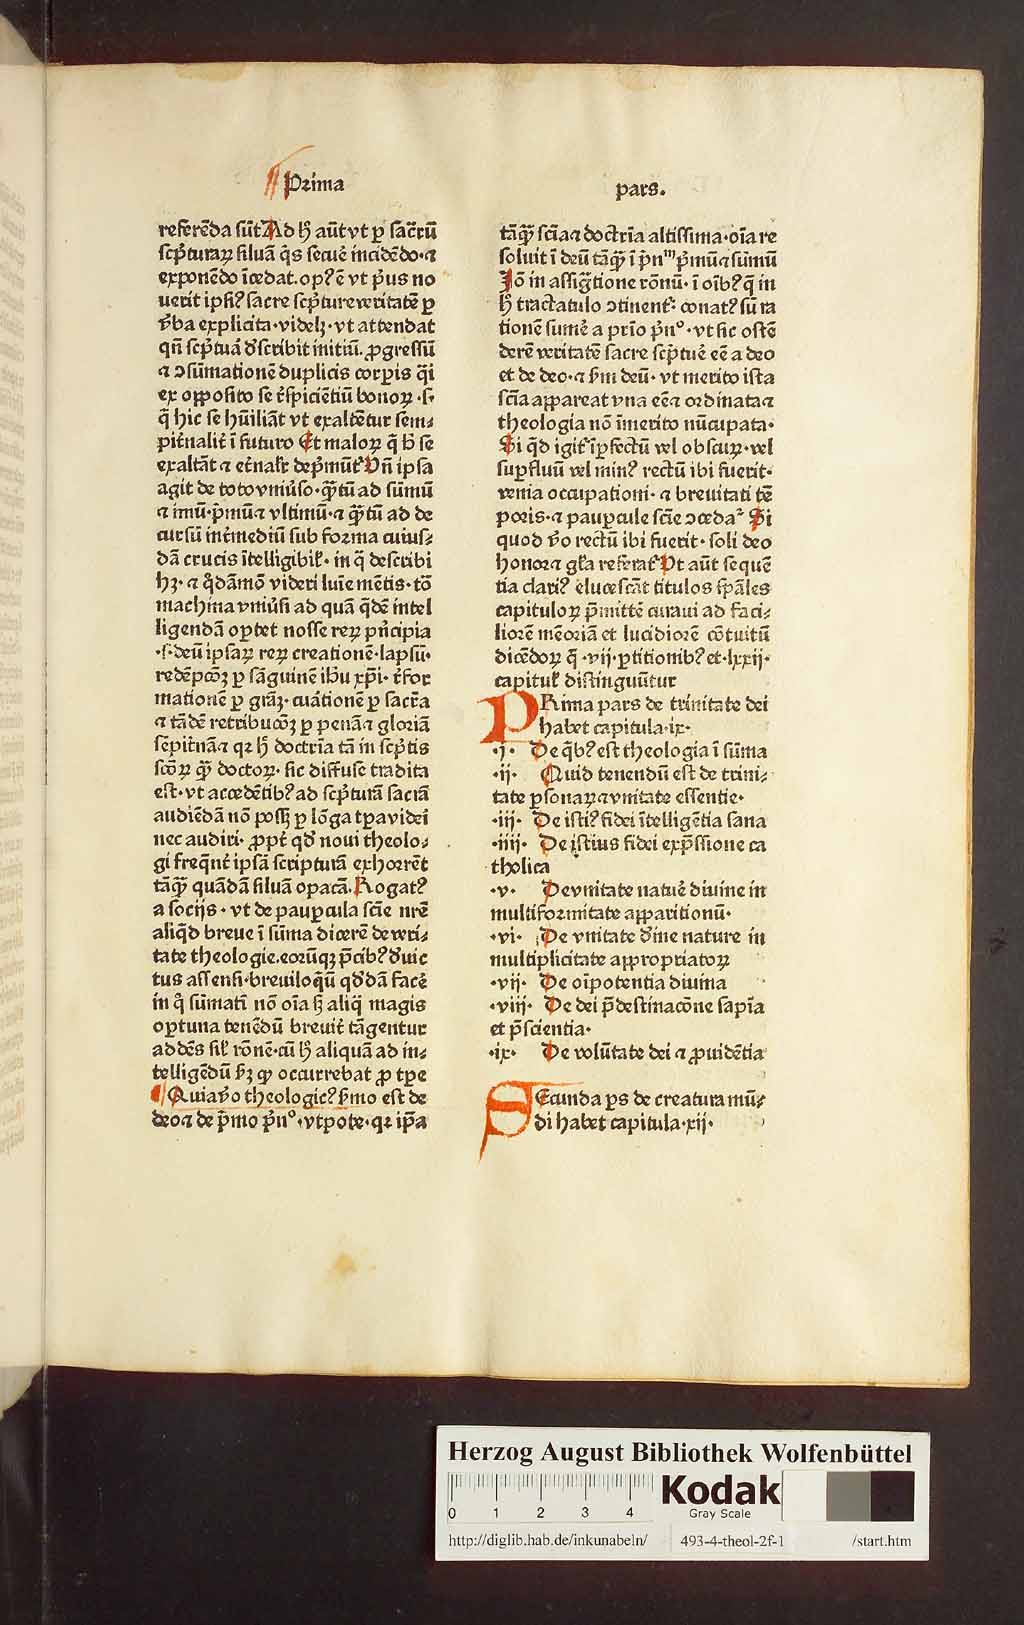 Prima
pars.
referēda sūt Ad hͦ aūt vt ꝑ sac̄rū
scp̄turaꝝ siluā q̄s secuē incidēdo·⁊
exponēdo īcedat. opꝰ ē vt p̄us no
uerit ipsiꝰ sacre scp̄ture veritatē ꝑ
v̄ba explicita·videlꝫ·vt attendat
qn̄ scp̄tura dʼscribit initiū. ꝓgressū
⁊ ꝯsūmationē duplicis corꝑis q̄i
ex opposito se rʼspiciētiū bonoꝝ·s·
q̄ hic se hūiliāt vt exaltētur sem⸗
pitʼnalitʼ ī futuro Et maloꝝ q̄ h̄ se
exaltāt ⁊ etʼnalr̄ depʼmūtʼ Vn̄ ipsa
agit de toto vniuʼso·q̄tū ad sūmū
⁊ imū·pʼmū ⁊ vltimū·⁊ q̄tū ad de
cursū intʼmediū sub forma cuius⸗
dā crucis ītelligibilʼ·in q̄ describi
hꝫ·⁊ qͦdāmō videri luīe mētis·tō
machina vniuʼsi ad quā q̄dē intel
ligendā oꝑtet nosse reꝝ pʼncipia
·s·deū ipsaꝝ reꝝ creationē·lapsū·
redēpcōꝫ ꝑ sāguinē ihū xp̄i·rʼfor
mationē ꝑ grāꝫ·curationē ꝑ sacr̄a
⁊ tādē retribucōꝫ ꝑ penā ⁊ gloriā
sēpitʼnā ⁊ qꝛ hͦ doctrīa tā in scp̄tis
scōꝝ q̄ doctoꝝ·sic diffuse tradita
est·vt accedētibꝰ ad scp̄turā sacrā
audiēdā nō possꝫ ꝑ lōga tꝑa videī
nec audiri·ꝓptʼ qd̄ noui theolo⸗
gi freq̄ntʼ ipsā scripturā exhorrēt
tāq̄ quādā siluā opacā. Rogatꝰ
a socijs·vt de pauꝑcula scīe nr̄e
aliqͦd breue ī sūma dicerē de veri⸗
tate theologie. eorūqꝫ p̄cibꝰ dʼuic
tus assensi·breuiloq̄ū qd̄dā facē
in qͦ sūmatī nō oīa sꝫ aliq̄ magis
oꝑtuna tenēdū breuitʼ tāgentur
addēs silʼ rōnē·cū hͦ aliquā ad in⸗
telligēdū ẜꝫ ꝙ occurrebat ꝓ tꝑe
Quia vʼo theologicꝰ ẜmo est de
deo ⁊ de pʼmo pʼnͦ·vtpote·qꝛ ipʼa
tāq̄ scīa ⁊ doctrīa altissima·oīa re
soluit ī deū tāq̄ ī pʼnᵐ pʼmū ⁊ sūmū
Jō in assigtione rōnū·ī oībꝰ q̄ in
hͦ tractatulo ꝯtinentʼ·conatꝰ sū ra
tionē sumeʼ a prīo pʼnͦ·vt sic ostē
derē veritatē sacre scp̄tuē eē a deo
et de deo·⁊ ẜm deū·vt merito ista
scīa appareat vna eē ⁊ ordinata ⁊
theologia nō īmerito nūcupata·
Si qͦd igitʼ īꝑfectū vel obscuꝝ·vel
suꝑfluū vel minꝰ rectū ibi fuerit·
venia occupationi·⁊ breuitati tē
poris·⁊ pauꝑcule scīe ꝯcedaʼ Si
quod vʼo rectū ibi fuerit·soli deo
honor ⁊ glʼa referatʼ Vt aūt sequē
tia clariꝰ elucescāt titulos sp̄ales
capituloꝝ p̄mittē curaui ad faci⸗
liorē memoriā et lucidiorē cōtuitū
dicēdoꝝ q̄·vij·ꝑtitionibꝰ et·lxxij·
capitulʼ distinguūtur
PRima pars de trinitate dei
habet capitula·ix·
·i· De q̄bꝰ est theologia ī sūma
·ii· Quid tenendū est de trini⸗
tate ꝑsonaꝝ ⁊ vnitate essentie·
·iii· De istiꝰ fidei ītelligētia sana
·iiii· De istius fidei exp̄ssione ca
tholica
·v· De vnitate natuē diuine in
multiformitate apparitionū·
·vi· De vnitate dʼine nature in
multiplicitate appropriatoꝝ
·vij· De oīpotentia diuina
·viij· De dei p̄destinacōne sapīa
et p̄scientia·
·ix· De volūtate dei ⁊ ꝓuidētia
SEcunda ꝑs de creatura mū⸗
di habet capitula·xij·
Herzog August Bibliothek Wolfenbüttel
0 1 2 3 4
Kodak
Gray Scale
http://diglib.hab.de/inkunabeln/ 493-4-theol-2f-1 /start.htm